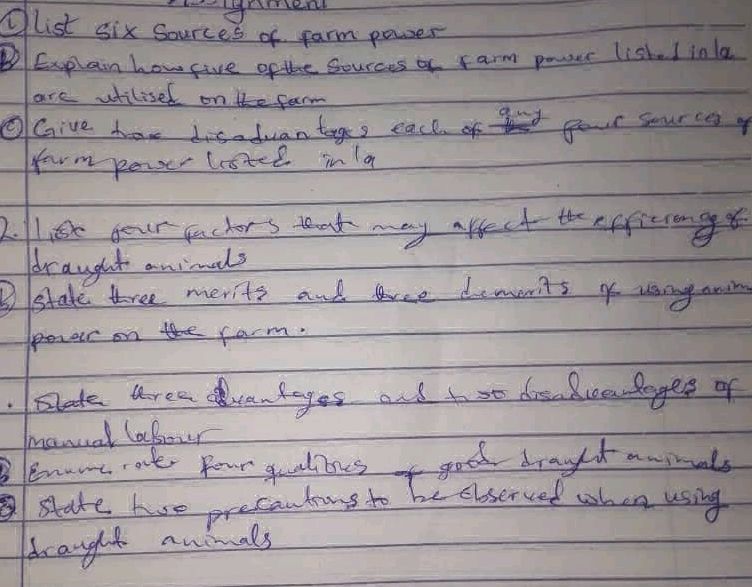 Assignment
① List six Sources of farm power
B Explain how five of the Sources of farm power listed in 1a
are utilised on the farm
C Give two disadvantages each of any four sources of
farm power listed in 1a
2. List four factors that may affect the efficiency of
draught animals
B State three merits and three demerits of using anim
power on the farm.
. State three advantages and two disadvantages of
manual labour
B Enumerate four qualities of good draught animals
C State two precautions to be observed when using
draught animals